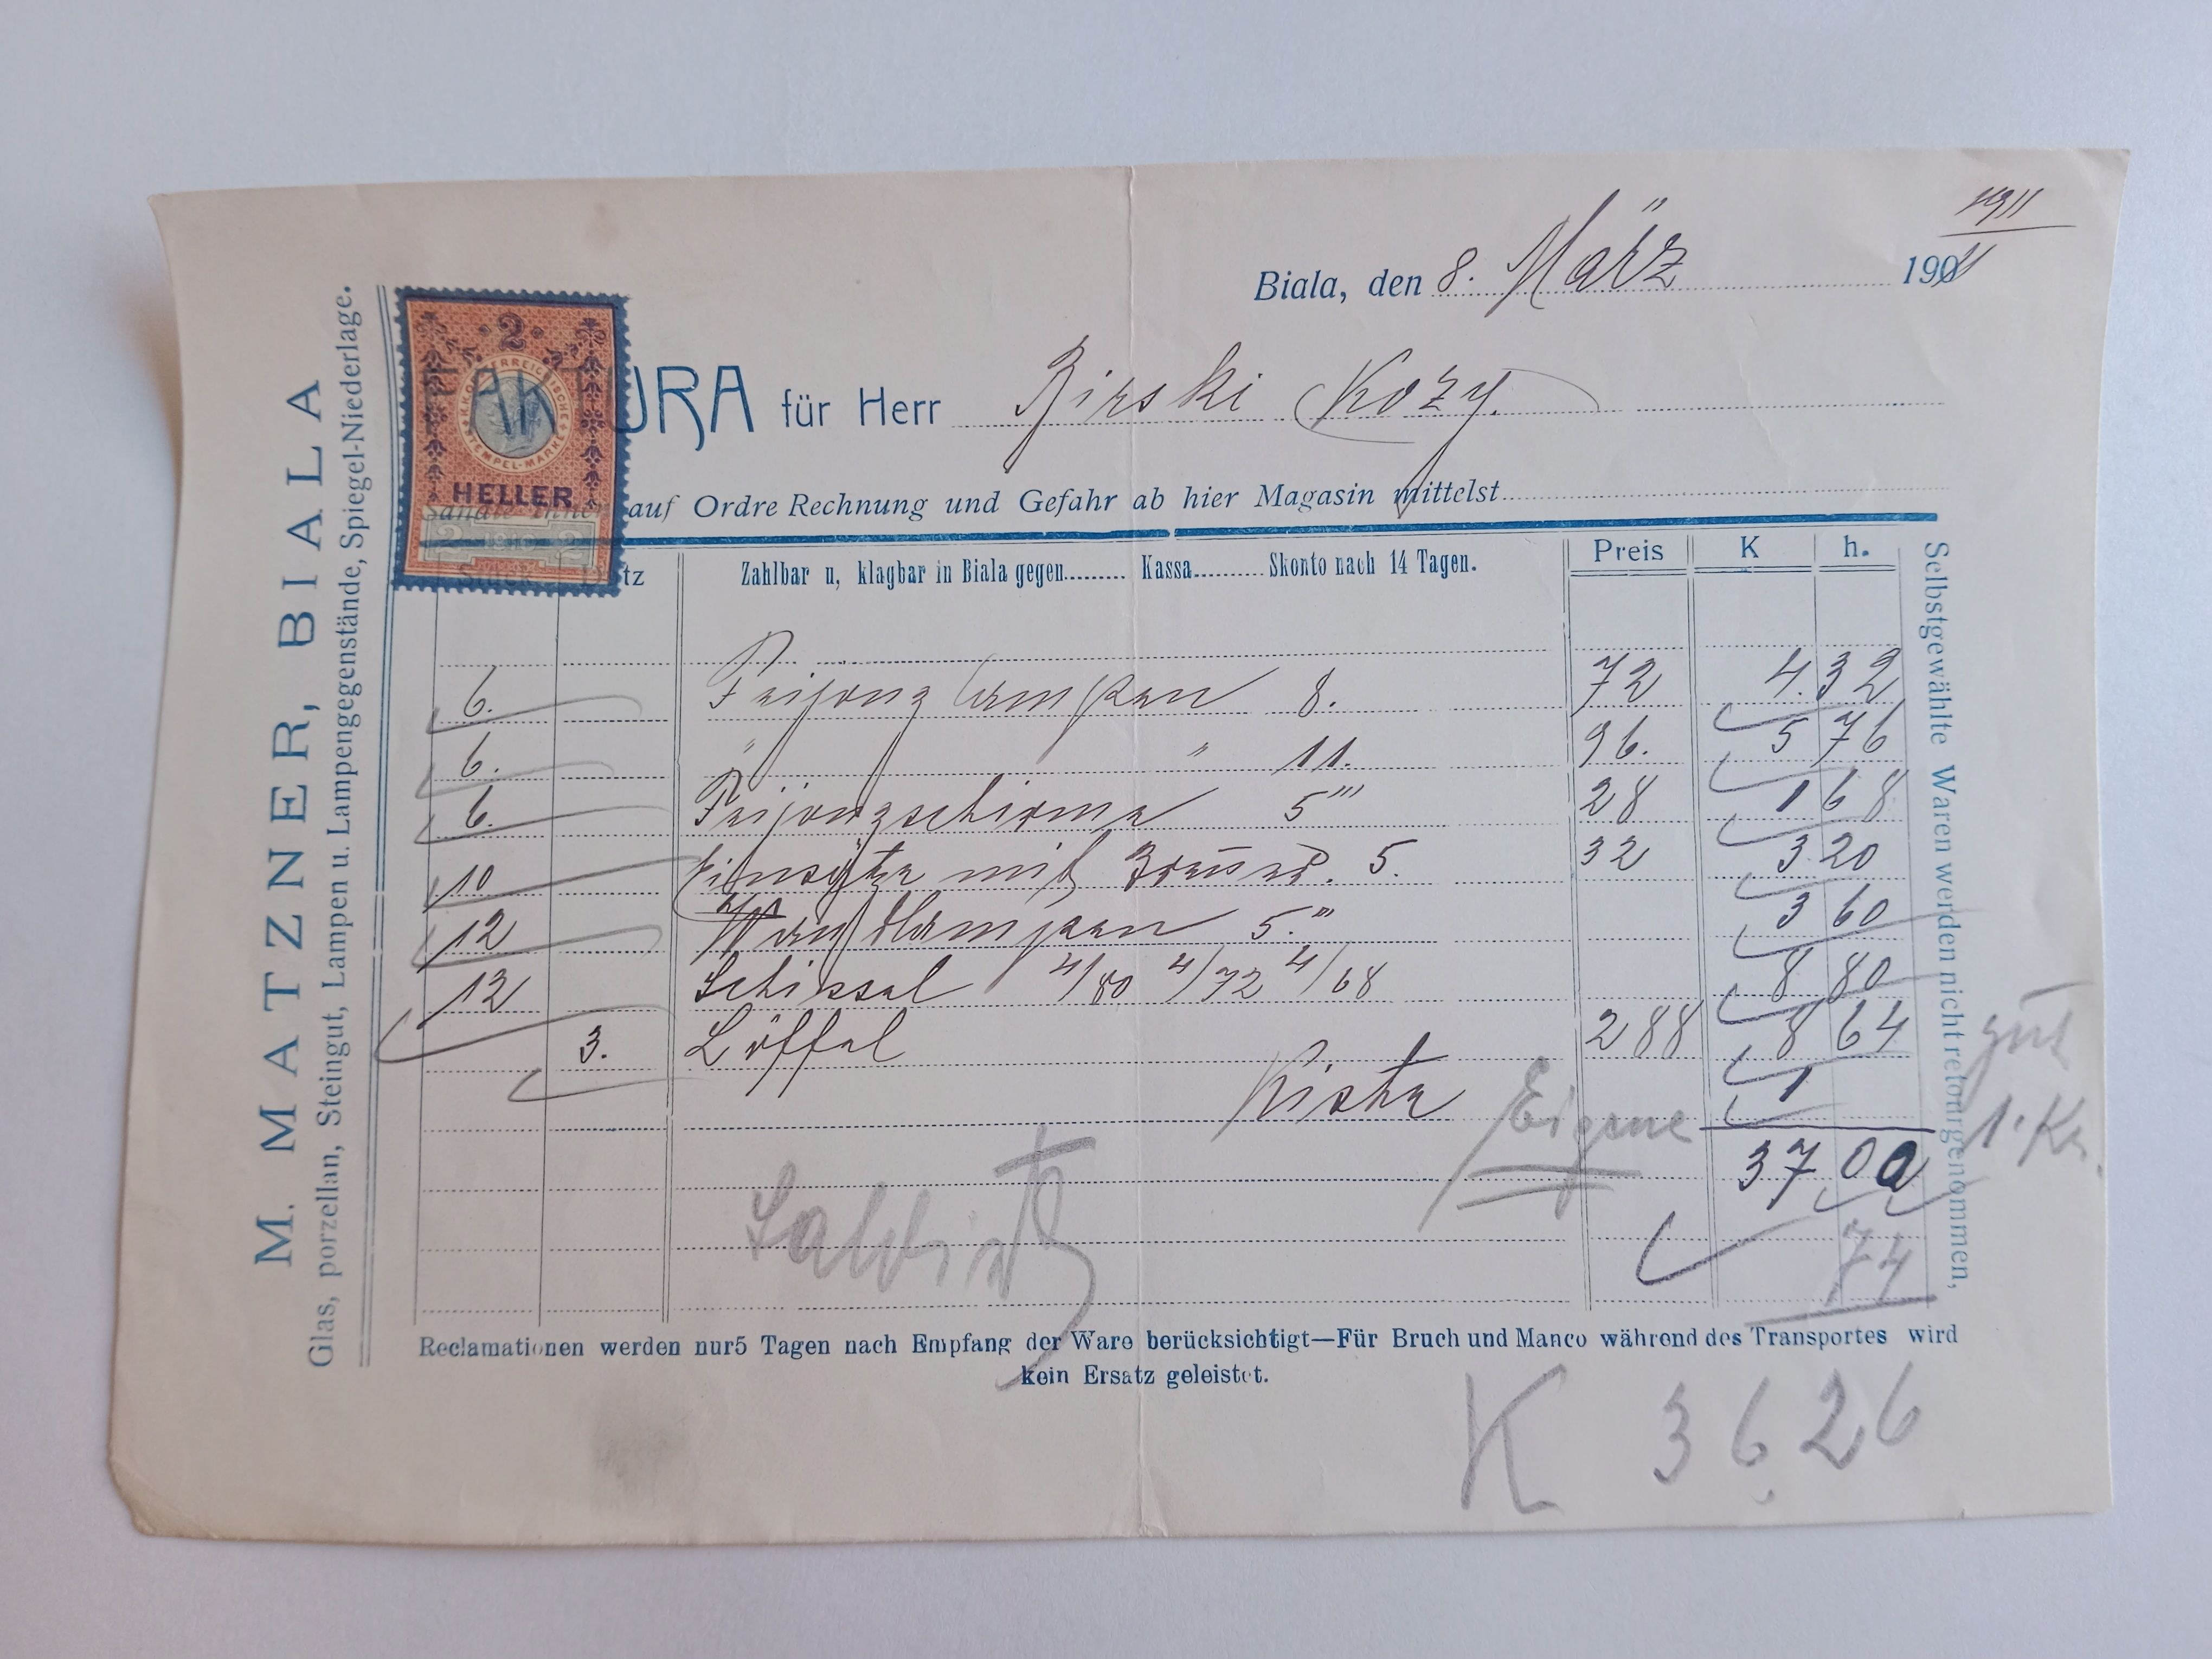 M. MATZNER, BIALA
Glas, porzellan, Steingut, Lampen u. Lampengegenstände, Spiegel-Niederlage.
1911
Biala, den 8. März 1901
2
K.K. OESTERREICHISCHE STEMPEL-MARKE
HELLER
2 1910 2
FAKTURA für Herr Birski Kozy.
Sandte Ihnen auf Ordre Rechnung und Gefahr ab hier Magasin mittelst
Stück Dutz Zahlbar u, klagbar in Biala gegen......... Kassa.......... Skonto nach 14 Tagen. Preis K h.
6. lampen 8. 72 4. 32
6. " " 11. 96. 5 76
6. schirme 5''' 28 1 68
10 Einsätze mit 5. 32 3 20
12 Wandlampen 5.''' 3 60
12 Schissel 4/80 4/72 4/68 8 80
3. Löffel 288 8 64
Kiste Eigene 1
gut
1. Kr.
37 00
74
Selbstgewählte Waren werden nicht retourgenommen,
Reclamationen werden nur5 Tagen nach Empfang der Ware berücksichtigt—Für Bruch und Manco während des Transportes wird
kein Ersatz geleistet.
K 36,26